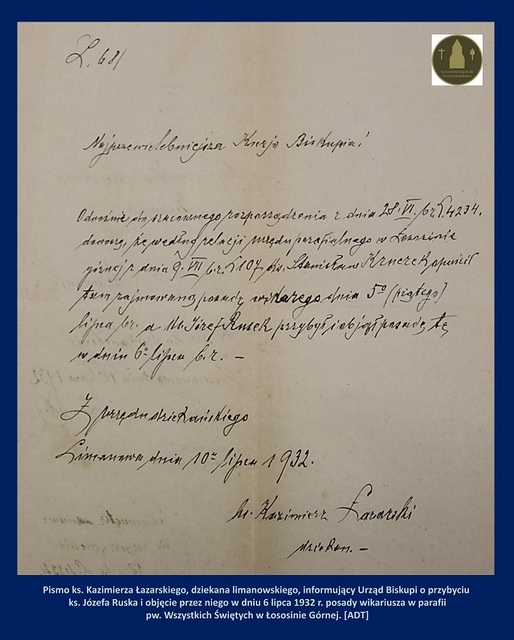 L. 68/
Najprzewielebniejsza Kurjo Biskupia!
Odnośnie do szacownego rozporządzenia z dnia 28. VI. br. L. 4234.
donoszę, że według relacji urzędu parafialnego w Łososinie
górnej z dnia 9. VII br. L 107, ks. Stanisław Kruczek opuścił
tam zajmowaną posadę wikarego dnia 5º (piątego)
lipca br. a ks. Józef Rusek przybył i objął posadę tę
w dniu 6º lipca b. r. –
Z urzędu dziekańskiego
Limanowa dnia 10º lipca 1932.
ks. Kazimierz Łazarski
dziekan. –
Pismo ks. Kazimierza Łazarskiego, dziekana limanowskiego, informujący Urząd Biskupi o przybyciu
ks. Józefa Ruska i objęcie przez niego w dniu 6 lipca 1932 r. posady wikariusza w parafii
pw. Wszystkich Świętych w Łososinie Górnej. [ADT]